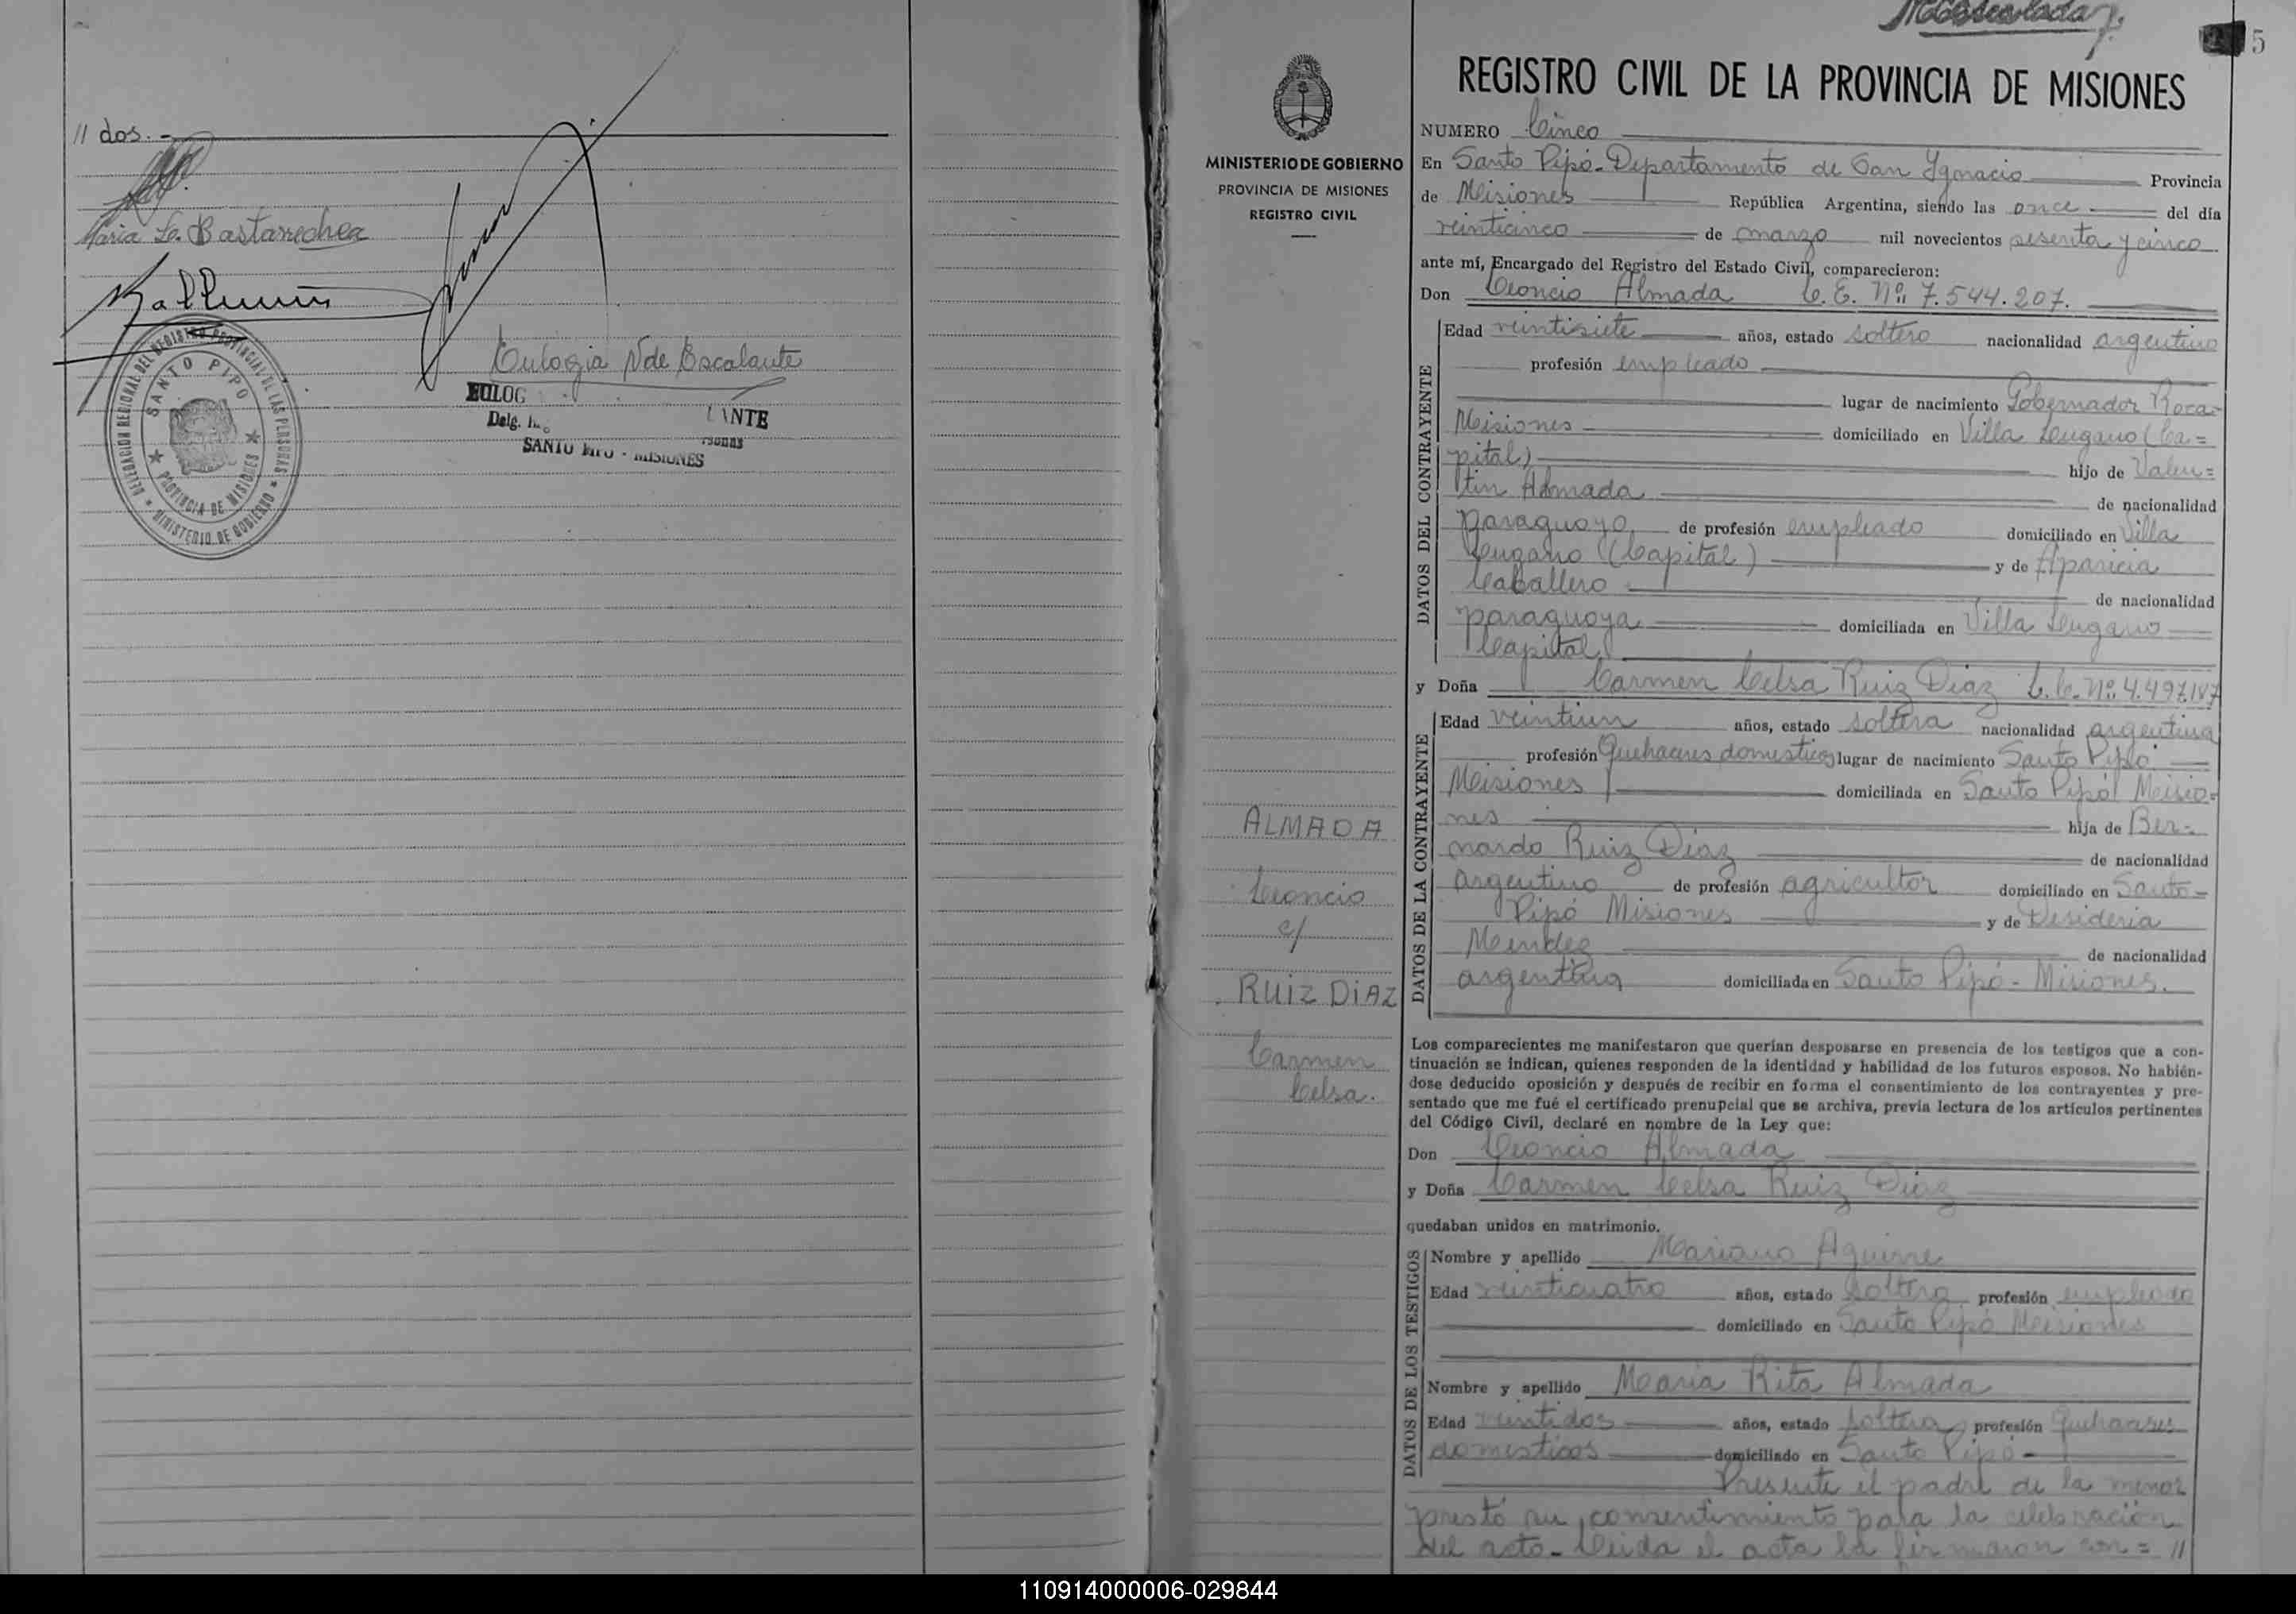 // dos.-
Maria L. Bastarrechea
Eulogia V de Escalante
EULOG LANTE
Delg.
SANTO PIPO - MISIONES
DELEGACION REGIONAL DEL REGISTRO PROVINCIAL DE LAS PERSONAS
SANTO PIPO
PROVINCIA DE MISIONES
MINISTERIO DE GOBIERNO
5
MINISTERIO DE GOBIERNO
PROVINCIA DE MISIONES
REGISTRO CIVIL
ALMADA
Leoncio
c/
RUIZ DIAZ
Carmen
Celsa.
REGISTRO CIVIL DE LA PROVINCIA DE MISIONES
NUMERO Cinco
En Santo Pipó - Departamento de San Ygnacio Provincia
de Misiones República Argentina, siendo las once del día
veinticinco de marzo mil novecientos sesenta y cinco
ante mí, Encargado del Registro del Estado Civil, comparecieron:
Don Leoncio Almada L. E. Nº 7.544.207.
DATOS DEL CONTRAYENTE
Edad veintisiete años, estado soltero nacionalidad argentino
profesión empleado
lugar de nacimiento Gobernador Roca-
Misiones domiciliado en Villa Lugano (Ca=
pital) hijo de Valen=
tin Almada de nacionalidad
paraguayo de profesión empleado domiciliado en Villa
Lugano (Capital) y de Aparicia
Caballero de nacionalidad
paraguaya domiciliada en Villa Lugano
Capital
y Doña Carmen Celsa Ruiz Diaz L. C. Nº
DATOS DE LA CONTRAYENTE
Edad veintiun años, estado soltera nacionalidad argentina
profesión Quehaceres domesticos lugar de nacimiento Santo Pipó
Misiones domiciliada en Santo Pipó Misio-
nes hija de Ber-
nardo Ruiz Diaz de nacionalidad
argentino de profesión agricultor domiciliado en Santo-
Pipó Misiones y de Desideria
Mendez de nacionalidad
argentina domiciliada en Santo Pipó - Misiones.
Los comparecientes me manifestaron que querían desposarse en presencia de los testigos que a con-
tinuación se indican, quienes responden de la identidad y habilidad de los futuros esposos. No habién-
dose deducido oposición y después de recibir en forma el consentimiento de los contrayentes y pre-
sentado que me fué el certificado prenupcial que se archiva, previa lectura de los artículos pertinentes
del Código Civil, declaré en nombre de la Ley que:
Don Leoncio Almada
y Doña Carmen Celsa Ruiz Diaz
quedaban unidos en matrimonio.
DATOS DE LOS TESTIGOS
Nombre y apellido Mariano Aguirre
Edad veinticuatro años, estado soltero profesión empleado
domiciliado en Santo Pipó Misiones
Nombre y apellido Maria Rita Almada
Edad veintidos años, estado soltera profesión Quehaceres
domesticos domiciliado en Santo Pipó -
Presente el padre de la menor
prestó su consentimiento para la celebración
del acto - Leida el acta la firmaron con = //
110914000006-029844